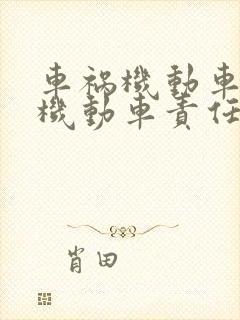 車祸機動車
機動車責任
肖田